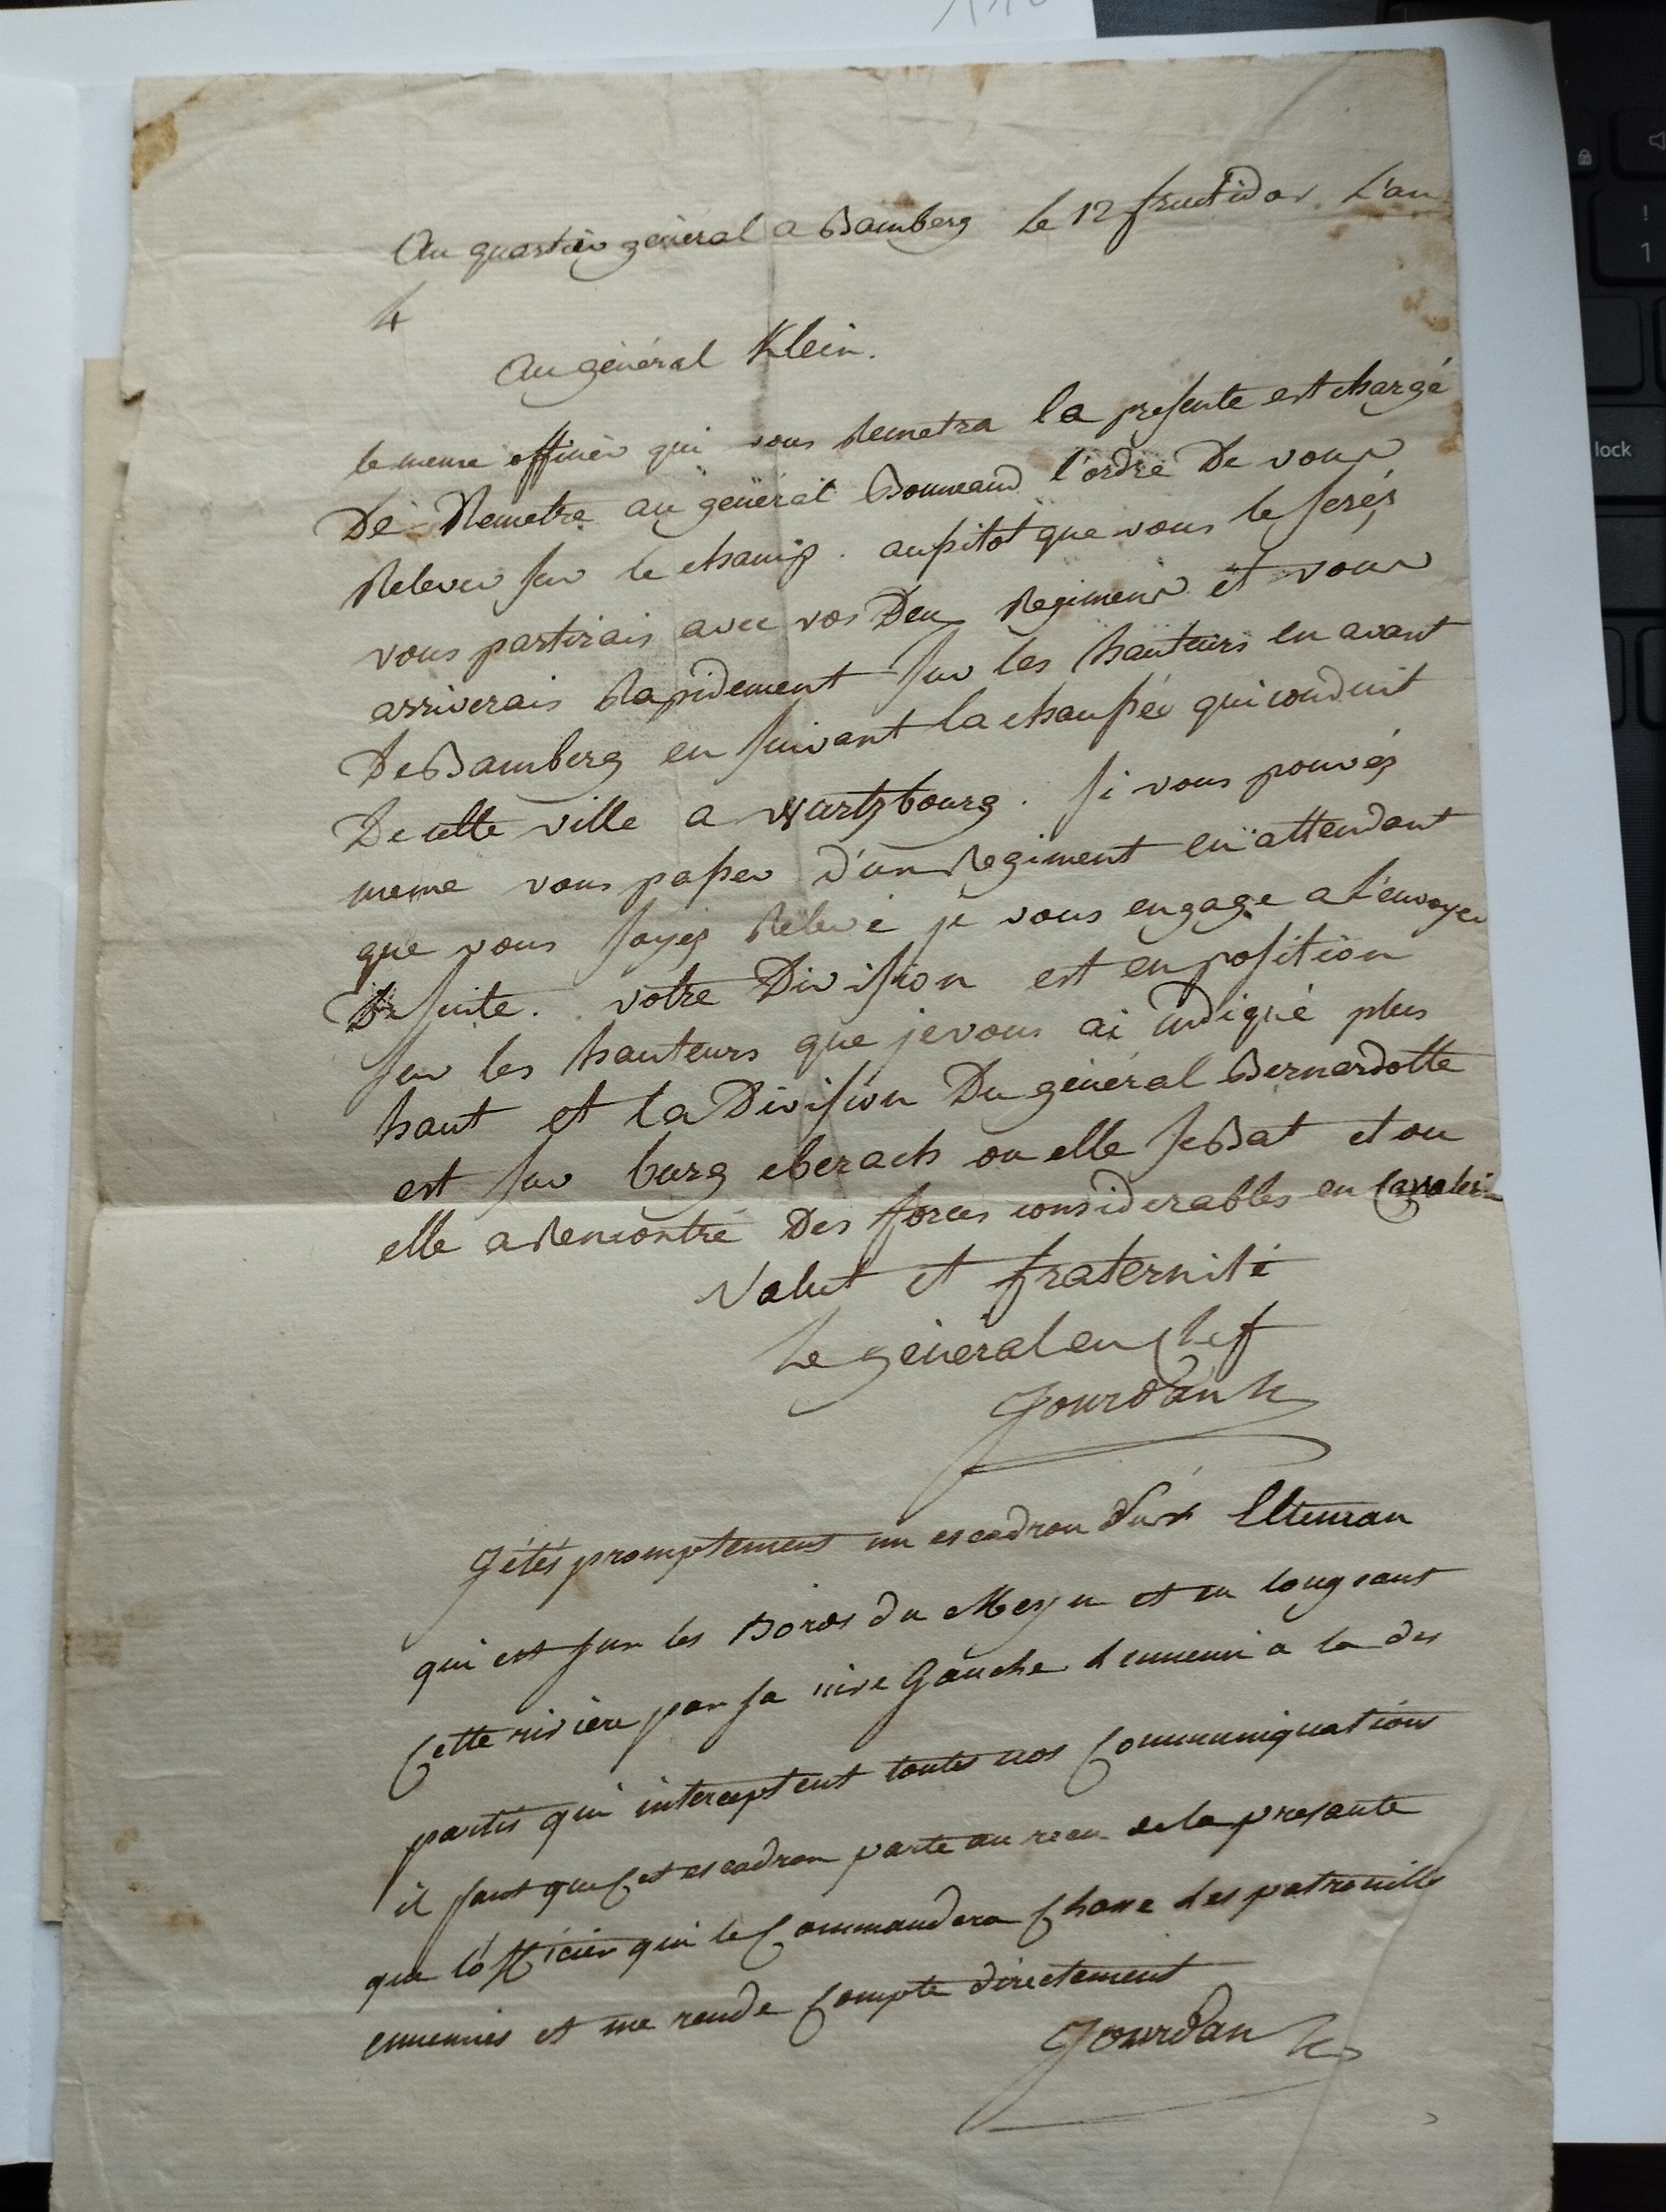 Au quartier général a Bamberg le 12 fructidor L'an
4
Au général Klein.
le meme officier qui vous Remetra la presente est chargé
De Remetre au général Bonneaud l'ordre De vous
Relever sur le champ. aussitot que vous le serés
vous partirais avec vos Deux Regimens et vous
arriverais Rapidement sur les hauteurs en avant
De Bamberg en suivant la chaussée qui conduit
De cette ville a wurtzbourg. si vous pouvés
meme vous passer d'un Regiment en attendant
que vous soyés Relevé je vous engage a l'envoyer
De suite. votre Division est en position
sur les hauteurs que je vous ai indiqué plus
haut et la Division Du général Bernardotte
est sur burg eberach ou elle se Bat et ou
elle a Rencontré Des forces considerables en Cavalerie
Salut et fraternité
Le général en Chef
Jourdan
Jétés promptement un escadron sur Eltman
qui est sur les Bords du Meyn et en longeant
Cette rivière par sa rive Gauche l ennemi a la des
partis qui interceptent toutes nos Communiquations
il faut que Cet escadron parte au recu de la presante
que l'officier qui le Commandera Chasse les patrouilles
ennemies et me rende Compte directement
Jourdan